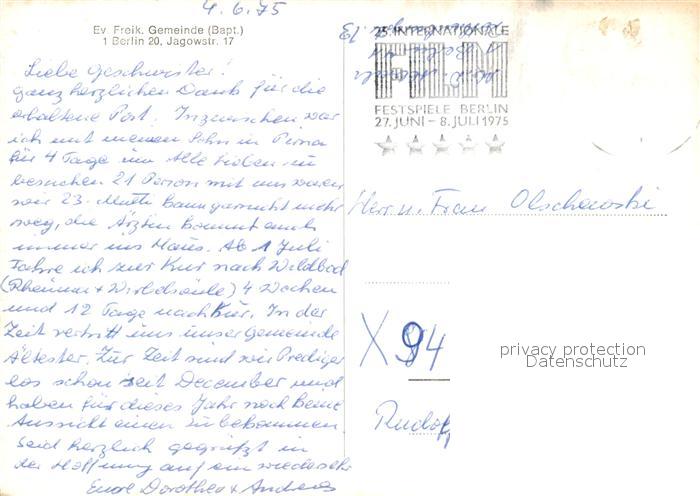 4.6.75
Ev. Freik. Gemeinde (Bapt.)
1 Berlin 20, Jagowstr. 17
Liebe Geschwister!
ganz herzlichen Dank für die
erhaltene Post. Inzwischen war
ich mit meinem Sohn in Pirna
für 4 Tage um alle Lieben zu
besuchen 21 Person mit uns waren
wir 23. Mutti kann gar nicht mehr
weg, die Ärztin kommt auch
immer ins Haus. Ab 1 Juli
fahre ich zur Kur nach Wildbad
(Rheuma + Wirbelsäule) 4 Wochen
und 12 Tage nach Kur. In der
Zeit vertritt uns unser Gemeinde
Ältester. Zur Zeit sind wir Prediger
los schon seit December und
haben für dieses Jahr noch keine
Aussicht einen zu bekommen.
Seid herzlich gegrüßt in
der Hoffnung auf ein wiedersehn
Eure Dorothea + Andreas
25. INTERNATIONALE
FILM
FESTSPIELE BERLIN
27. JUNI – 8. JULI 1975
Herr u. Frau Olschewski
X 94
privacy protection
Datenschutz